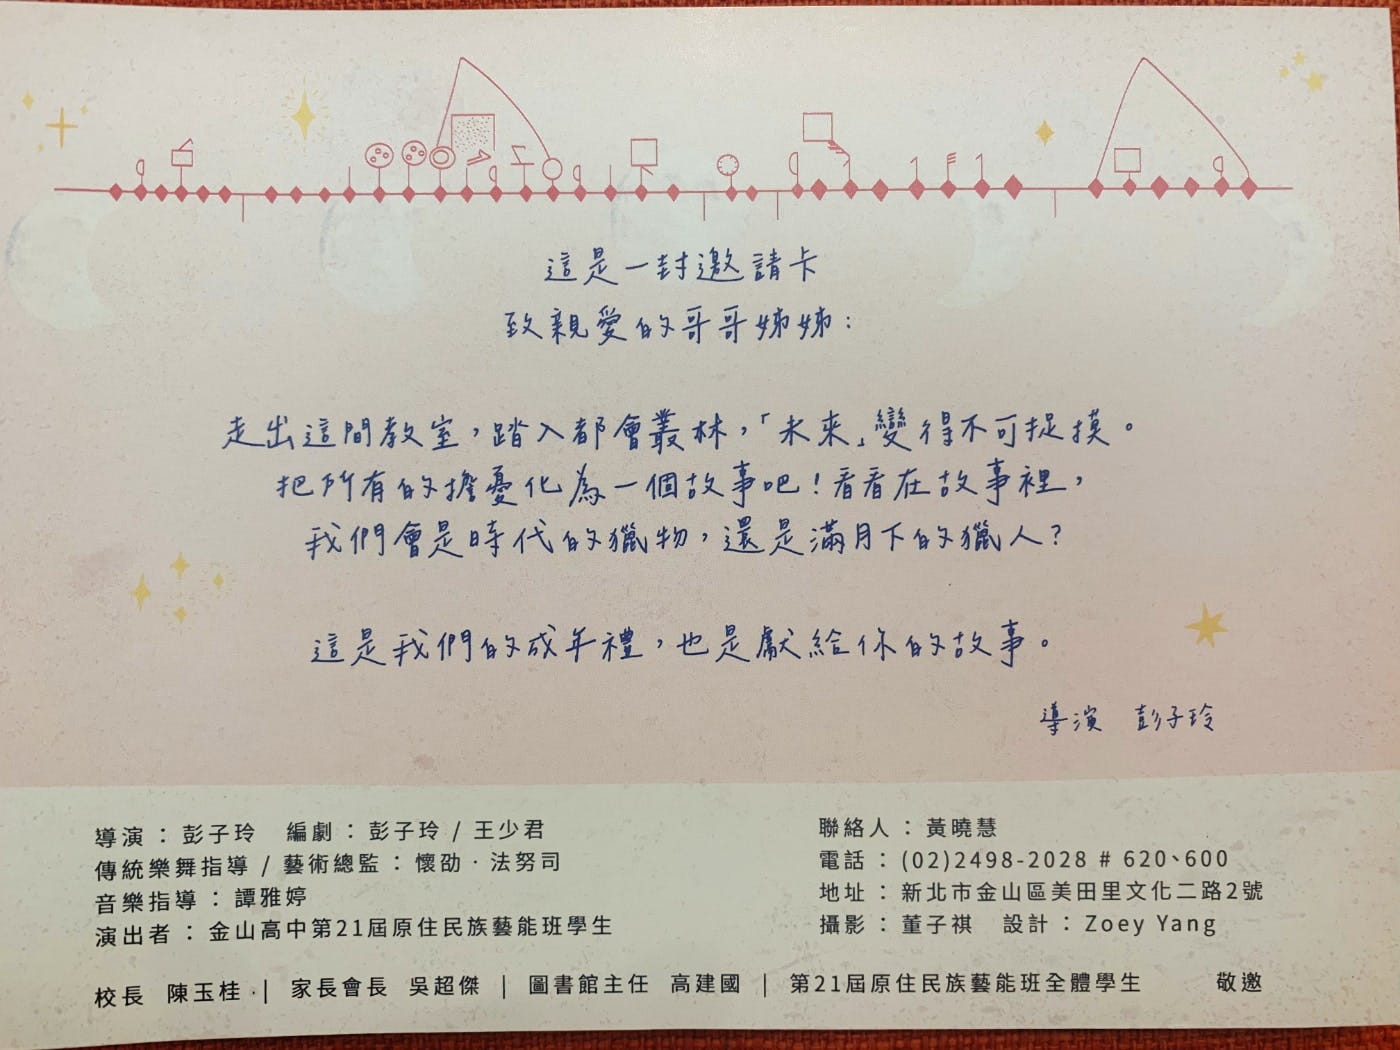 這是一封邀請卡
致親愛的哥哥姊姊：
走出這間教室，踏入都會叢林，「未來」變得不可捉摸。
把所有的擔憂化為一個故事吧！看看在故事裡，
我們會是時代的獵物，還是滿月下的獵人？
這是我們的成年禮，也是獻給你的故事。
導演 彭子玲
導演：彭子玲 編劇：彭子玲 / 王少君
傳統樂舞指導 / 藝術總監：懷劭．法努司
音樂指導：譚雅婷
演出者：金山高中第21屆原住民族藝能班學生
聯絡人：黃曉慧
電話：(02)2498-2028 # 620、600
地址：新北市金山區美田里文化二路2號
攝影：董子祺 設計：Zoey Yang
校長 陳玉桂 | 家長會長 吳超傑 | 圖書館主任 高建國 | 第21屆原住民族藝能班全體學生 敬邀